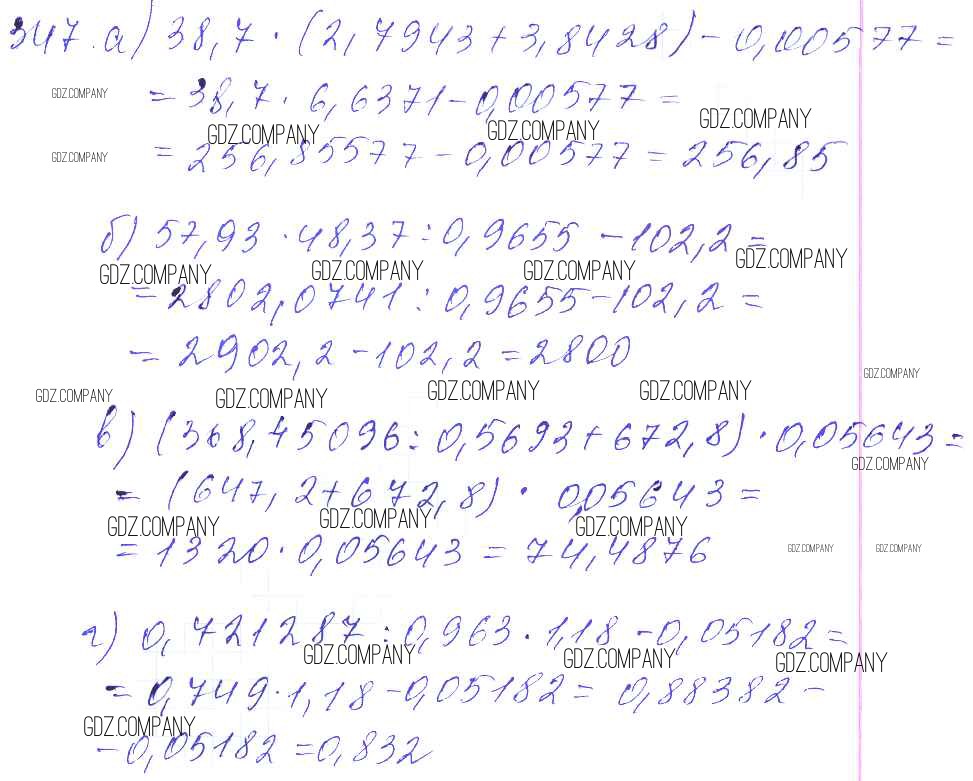 347. а) 38,7 · (2,7943 + 3,8428) - 0,00577 =
= 38,7 · 6,6371 - 0,00577 =
GDZ.COMPANY
GDZ.COMPANY GDZ.COMPANY GDZ.COMPANY
= 256,85577 - 0,00577 = 256,85
GDZ.COMPANY
б) 57,93 · 48,37 : 0,9655 - 102,2 =
GDZ.COMPANY GDZ.COMPANY GDZ.COMPANY GDZ.COMPANY
= 2802,0741 : 0,9655 - 102,2 =
= 2902,2 - 102,2 = 2800
GDZ.COMPANY
GDZ.COMPANY GDZ.COMPANY GDZ.COMPANY GDZ.COMPANY
в) (368,45096 : 0,5693 + 672,8) · 0,05643 =
GDZ.COMPANY
= (647,2 + 672,8) · 0,05643 =
GDZ.COMPANY GDZ.COMPANY GDZ.COMPANY
= 1320 · 0,05643 = 74,4876
GDZ.COMPANY GDZ.COMPANY
г) 0,721287 : 0,963 · 1,18 - 0,05182 =
GDZ.COMPANY GDZ.COMPANY GDZ.COMPANY
= 0,749 · 1,18 - 0,05182 = 0,88382 -
GDZ.COMPANY
- 0,05182 = 0,832